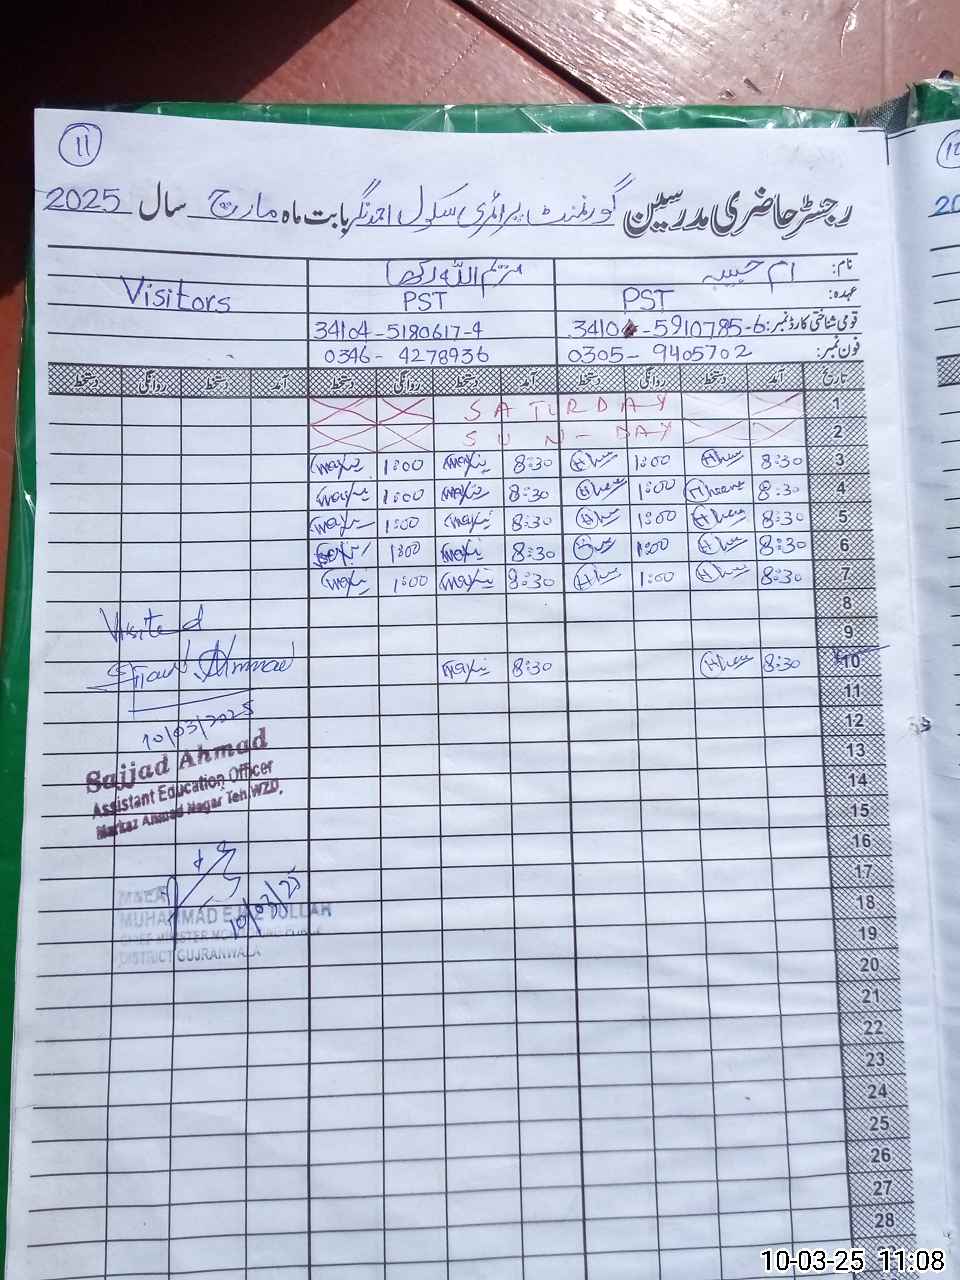 11
رجسٹر حاضری مدرسین گورنمنٹ پرائمری سکول احمد نگر بابت ماہ مارچ سال 2025
نام: ام حبیبہ مریم اللہ رکھا
Visitors
عہدہ: PST PST
قومی شناختی کارڈ نمبر: 3410-5910785-6 34104-5180617-4
فون نمبر: 0305-9405702 0346-4278936
تاریخ آمد دستخط روانگی دستخط آمد دستخط روانگی دستخط آمد دستخط روانگی دستخط
1 SATURDAY
2 SUN-DAY
3 8:30 1:00 8:30 1:00
4 8:30 1:00 8:30 1:00
5 8:30 1:00 8:30 1:00
6 8:30 1:00 8:30 1:00
7 8:30 1:00 8:30 1:00
8
9
10 8:30 8:30
11
12
13
14
15
16
17
18
19
20
21
22
23
24
25
26
27
28
Visited
10/03/2025
Sajjad Ahmad
Assistant Education Officer
Markaz Ahmad Nagar Teh WZD.
10/03/25
MUHAMMAD
DISTRICT GUJRANWALA
12
20
10-03-25 11:08